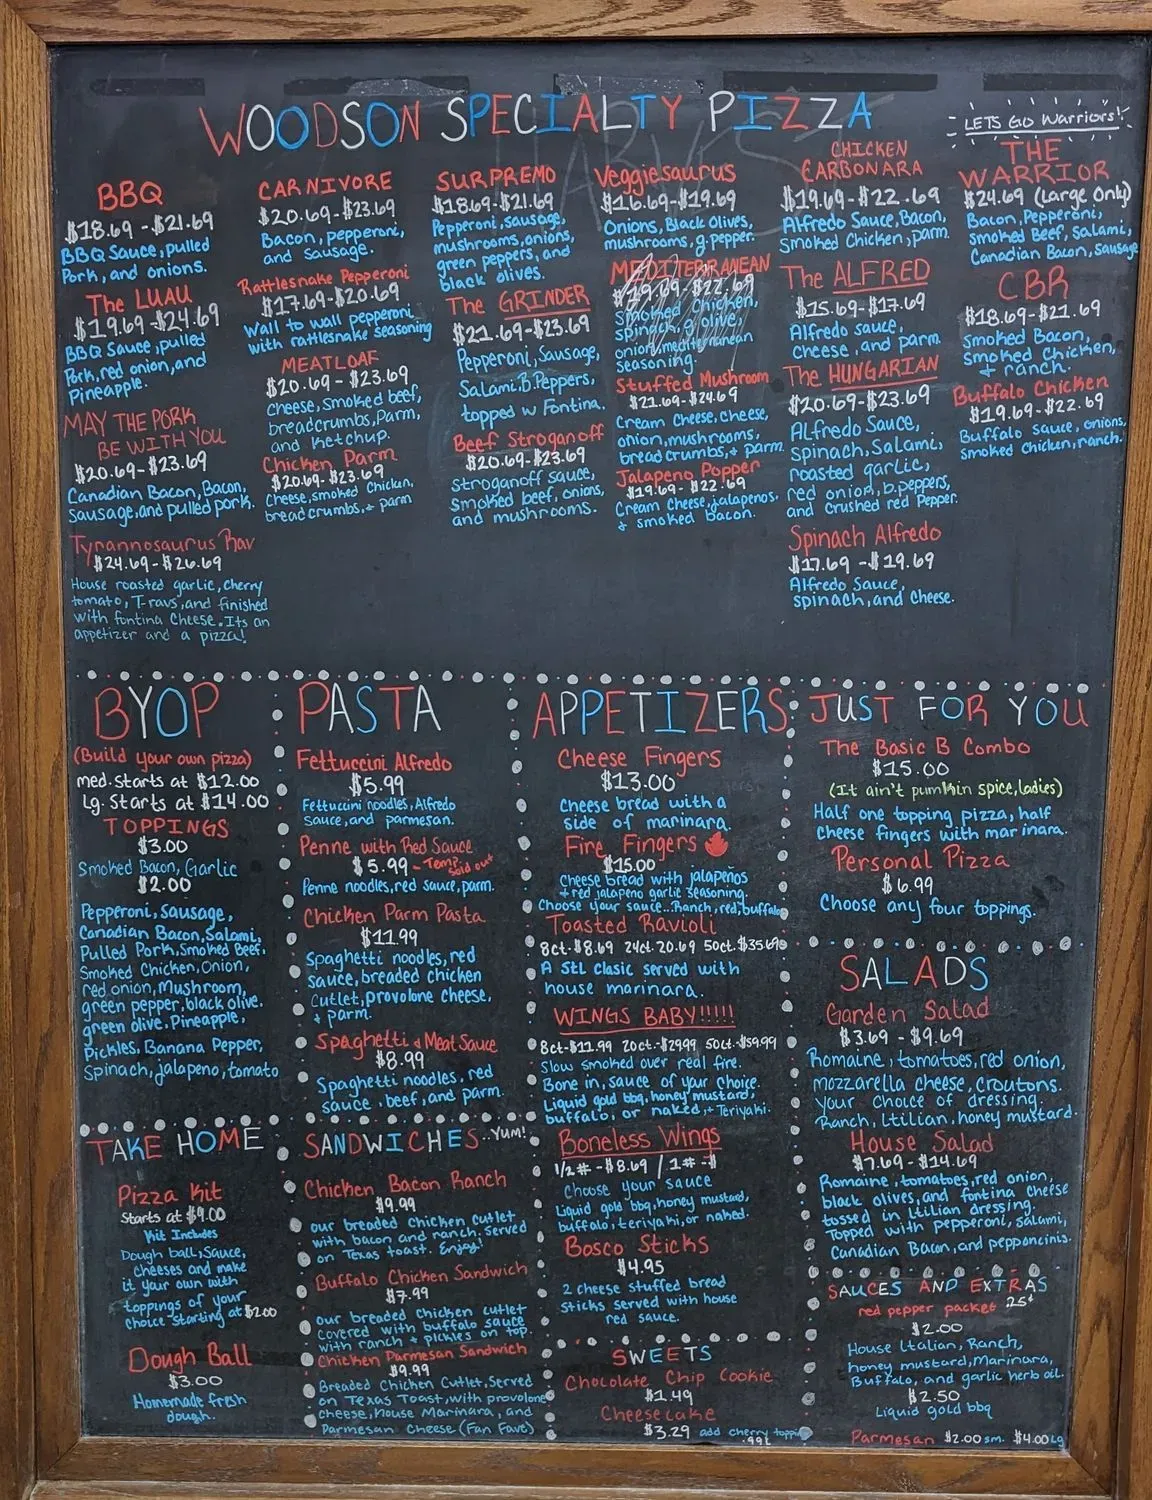 WOODSON SPECIALTY PIZZA
LETS GO Warriors!
BBQ
$18.69-$21.69
BBQ Sauce, pulled
Pork, and onions.
The LUAU
$19.69-$24.69
BBQ Sauce, pulled
Pork, red onion, and
Pineapple.
MAY THE PORK
BE WITH YOU
$20.69-$23.69
Canadian Bacon, Bacon,
Sausage, and pulled pork.
Tyrannosaurus Rav
$24.69-$26.69
House roasted garlic, cherry
tomato, T-ravs, and finished
with fontina cheese. Its an
appetizer and a pizza!
CARNIVORE
$20.69-$23.69
Bacon, pepperoni,
and sausage.
Rattlesnake Pepperoni
$17.69-$20.69
Wall to wall pepperoni
with rattlesnake seasoning
MEATLOAF
$20.69-$23.69
cheese, smoked beef,
breadcrumbs, Parm,
and Ketchup.
Chicken Parm
$20.69-$23.69
Cheese, smoked chicken,
bread crumbs, + parm
SUPREMO
$18.69-$21.69
Pepperoni, sausage,
mushrooms, onions,
green peppers, and
black olives.
The GRINDER
$21.69-$23.69
Pepperoni, Sausage,
Salami, B. Peppers,
topped w Fontina.
Beef Stroganoff
$20.69-$23.69
Stroganoff sauce,
smoked beef, onions,
and mushrooms.
Veggiesaurus
$16.69-$19.69
Onions, Black Olives,
mushrooms, g. pepper.
MEDITERRANEAN
$19.69-$22.69
Smoked chicken,
spinach, g. olive,
onion, mediterranean
seasoning.
Stuffed Mushroom
$21.69-$24.69
Cream Cheese, cheese,
onion, mushrooms,
bread crumbs, + parm
Jalapeno Popper
$19.69-$22.69
Cream Cheese, jalapenos,
+ smoked bacon.
CHICKEN
CARBONARA
$19.69-$22.69
Alfredo Sauce, Bacon,
Smoked Chicken, parm.
The ALFRED
$15.69-$17.69
Alfredo sauce,
Cheese, and parm
The HUNGARIAN
$20.69-$23.69
Alfredo Sauce,
Spinach, Salami,
roasted garlic,
red onion, b. peppers,
and crushed red Pepper.
Spinach Alfredo
$17.69-$19.69
Alfredo Sauce,
spinach, and cheese.
THE
WARRIOR
$24.69 (Large Only)
Bacon, Pepperoni,
Smoked Beef, Salami,
Canadian Bacon, Sausage
CBR
$18.69-$21.69
Smoked Bacon,
Smoked Chicken,
+ ranch.
Buffalo Chicken
$19.69-$22.69
Buffalo sauce, onions,
smoked chicken, ranch.
BYOP
(Build your own pizza)
med. starts at $12.00
Lg. Starts at $14.00
TOPPINGS
$3.00
Smoked Bacon, Garlic
$2.00
Pepperoni, Sausage,
Canadian Bacon, Salami,
Pulled Pork, Smoked Beef,
Smoked Chicken, Onion,
red onion, Mushroom,
green pepper, black olive,
green olive, Pineapple,
Pickles, Banana Pepper,
Spinach, jalapeno, tomato
TAKE HOME
Pizza Kit
Starts at $9.00
Kit Includes
Dough ball, Sauce,
cheeses and make
it your own with
toppings of your
choice starting at $2.00
Dough Ball
$3.00
Homemade fresh
dough.
PASTA
Fettuccini Alfredo
$5.99
Fettuccini noodles, Alfredo
Sauce, and parmesan.
Penne with Red Sauce
$5.99 - Temp. sold out
Penne noodles, red sauce, parm.
Chicken Parm Pasta
$11.99
Spaghetti noodles, red
sauce, breaded chicken
cutlet, provolone cheese,
+ parm.
Spaghetti & Meat Sauce
$8.99
Spaghetti noodles, red
sauce, beef, and parm.
SANDWICHES..YUM!
Chicken Bacon Ranch
$9.99
our breaded chicken cutlet
with bacon and ranch, served
on Texas toast. Enjoy!
Buffalo Chicken Sandwich
$7.99
our breaded chicken cutlet
covered with buffalo sauce
with ranch + pickles on top.
Chicken Parmesan Sandwich
$9.99
Breaded Chicken Cutlet, Served
on Texas Toast, with provolone
cheese, house Marinara, and
Parmesan Cheese (Fan Favo)
APPETIZERS
Cheese Fingers
$13.00
Cheese bread with a
side of marinara.
Fire Fingers
$15.00
Cheese bread with jalapeños
+ red jalapeno garlic seasoning
Choose your sauce... Ranch, red, buffalo
Toasted Ravioli
8ct-$8.69 24ct. 20.69 50ct. $35.69
A STL clasic served with
house marinara.
WINGS BABY!!!!!
8ct-$11.99 20ct-$29.99 50ct-$59.99
Slow smoked over real fire.
Bone in, sauce of your choice.
Liquid gold bbq, honey mustard,
buffalo, or naked, + Teriyaki.
Boneless Wings
1/2# -$8.69 / 1# -$
Choose your sauce
Liquid gold bbq, honey mustard,
buffalo, teriyaki, or naked.
Bosco Sticks
$4.95
2 cheese stuffed bread
sticks served with house
red sauce.
SWEETS
Chocolate Chip Cookie
$1.49
Cheesecake
$3.29 add cherry topping
.99¢
JUST FOR YOU
The Basic B Combo
$15.00
(It ain't pumkin spice, ladies)
Half one topping pizza, half
cheese fingers with marinara.
Personal Pizza
$6.99
Choose any four toppings.
SALADS
Garden Salad
$3.69 - $9.69
Romaine, tomatoes, red onion,
mozzarella cheese, croutons.
your choice of dressing.
Ranch, Itilian, honey mustard.
House Salad
$7.69-$14.69
Romaine, tomatoes, red onion,
black olives, and fontina cheese
tossed in Itilian dressing.
Topped with pepperoni, salami,
Canadian Bacon, and pepponcinis.
SAUCES AND EXTRAS
red pepper packet .25¢
$2.00
House Italian, Ranch,
honey mustard, Marinara,
Buffalo, and garlic herb oil.
$2.50
Liquid gold bbq
Parmesan $2.00 sm. $4.00 Lg